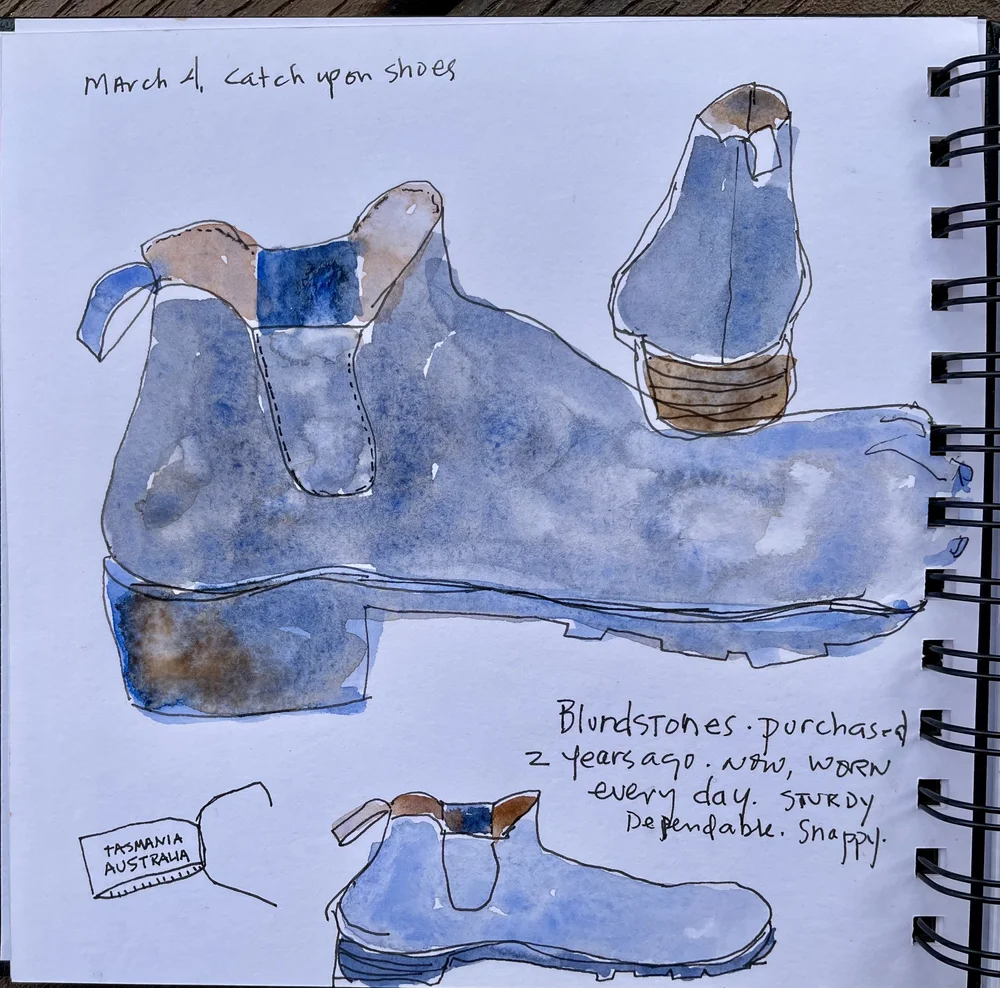 March 4, catch up on shoes
Blundstones. purchased
2 years ago. NOW, WORN
every day. STURDY
Dependable. Snappy.
TASMANIA
AUSTRALIA